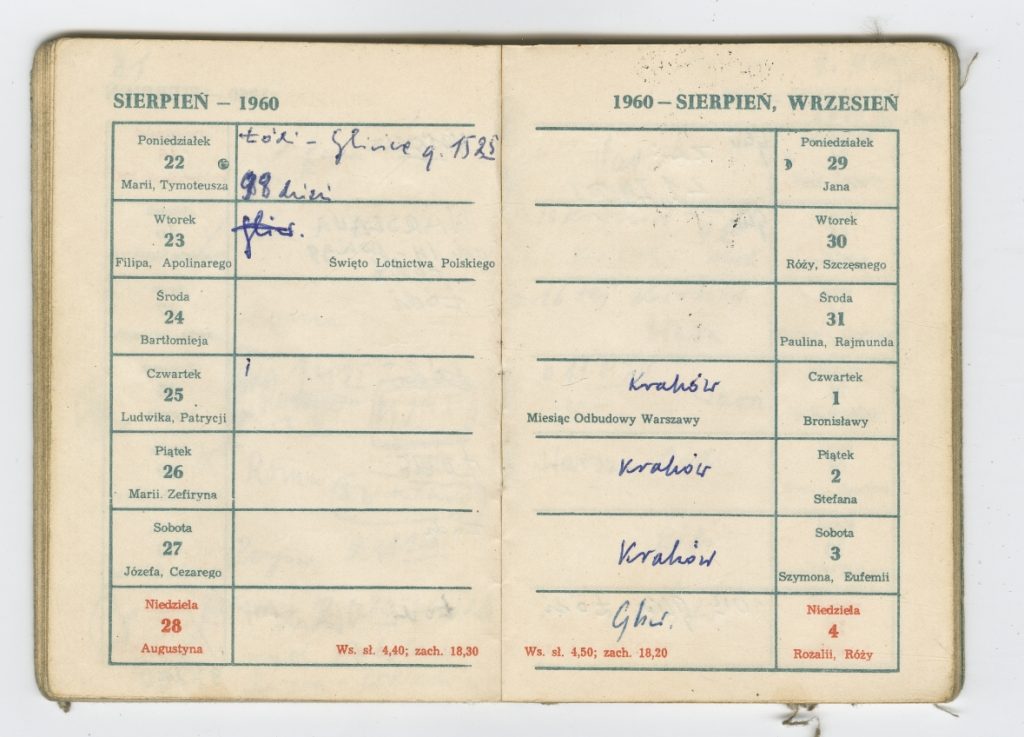 SIERPIEŃ – 1960
Poniedziałek
22
Marii, Tymoteusza
Łódź – Gliwice g. 1525
98 dzień
Wtorek
23
Filipa, Apolinarego
Gliw.
Święto Lotnictwa Polskiego
Środa
24
Bartłomieja
Czwartek
25
Ludwika, Patrycji
Piątek
26
Marii. Zefiryna
Sobota
27
Józefa, Cezarego
Niedziela
28
Augustyna
Ws. sł. 4,40; zach. 18,30
1960 – SIERPIEŃ, WRZESIEŃ
Poniedziałek
29
Jana
Wtorek
30
Róży, Szczęsnego
Środa
31
Paulina, Rajmunda
Kraków
Miesiąc Odbudowy Warszawy
Czwartek
1
Bronisławy
Kraków
Piątek
2
Stefana
Kraków
Sobota
3
Szymona, Eufemii
Gliw.
Ws. sł. 4,50; zach. 18,20
Niedziela
4
Rozalii, Róży